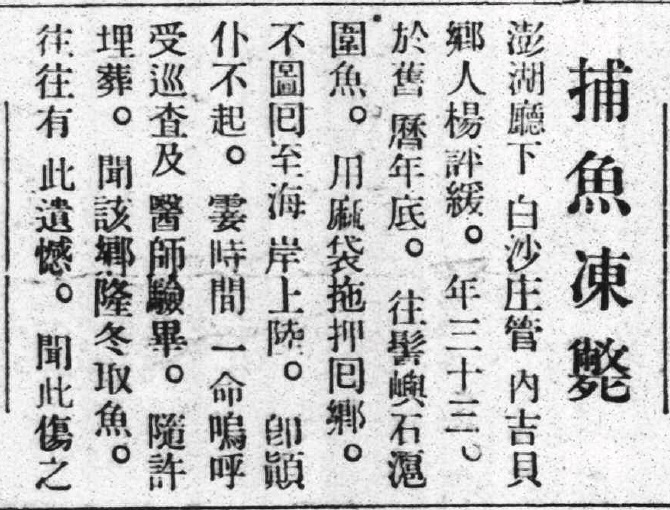 捕魚凍斃
澎湖廳下 白沙庄管 內吉貝
鄉人楊評緩。 年三十三。
於舊曆年底。 往髻嶼石滬
圍魚。 用麻袋拖押囘鄉。
不圖囘至海岸上陸。 卽顚
仆不起。 霎時間一命嗚呼
受巡査及醫師驗畢。 隨許
埋葬。 聞該鄉隆冬取魚。
往往有此遺憾。 聞此傷之